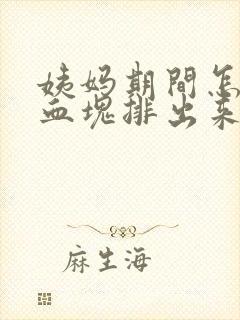 姨妈期間怎
血塊排出来
麻生海